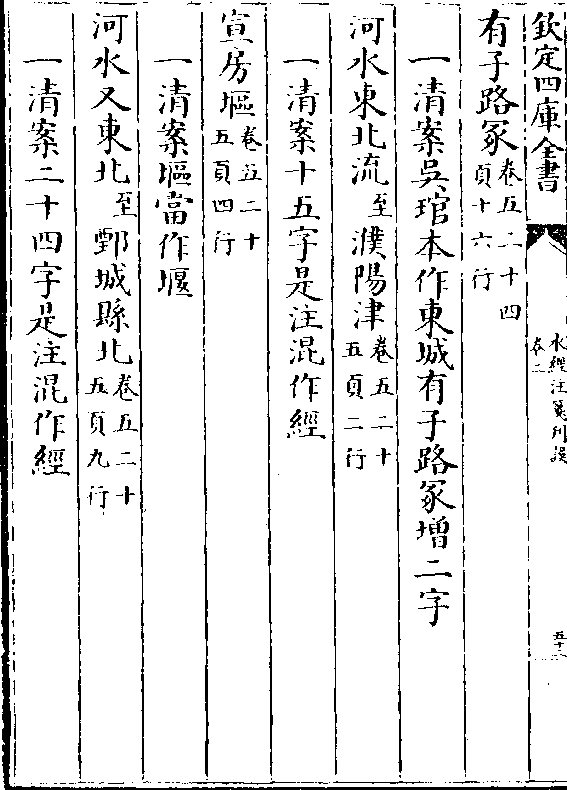 欽定四庫全書
水經注箋刊誤
卷二
有子路冢卷五二十四頁十六行
一清案吳琯本作東城有子路冢增二字
河水東北流至濮陽津卷五二十五頁二行
一清案十五字是注混作經
宣房堰卷五二十五頁四行
一清案塸當作堰
河水又東北至鄄城縣北卷五二十五頁九行
一清案二十四字是注混作經